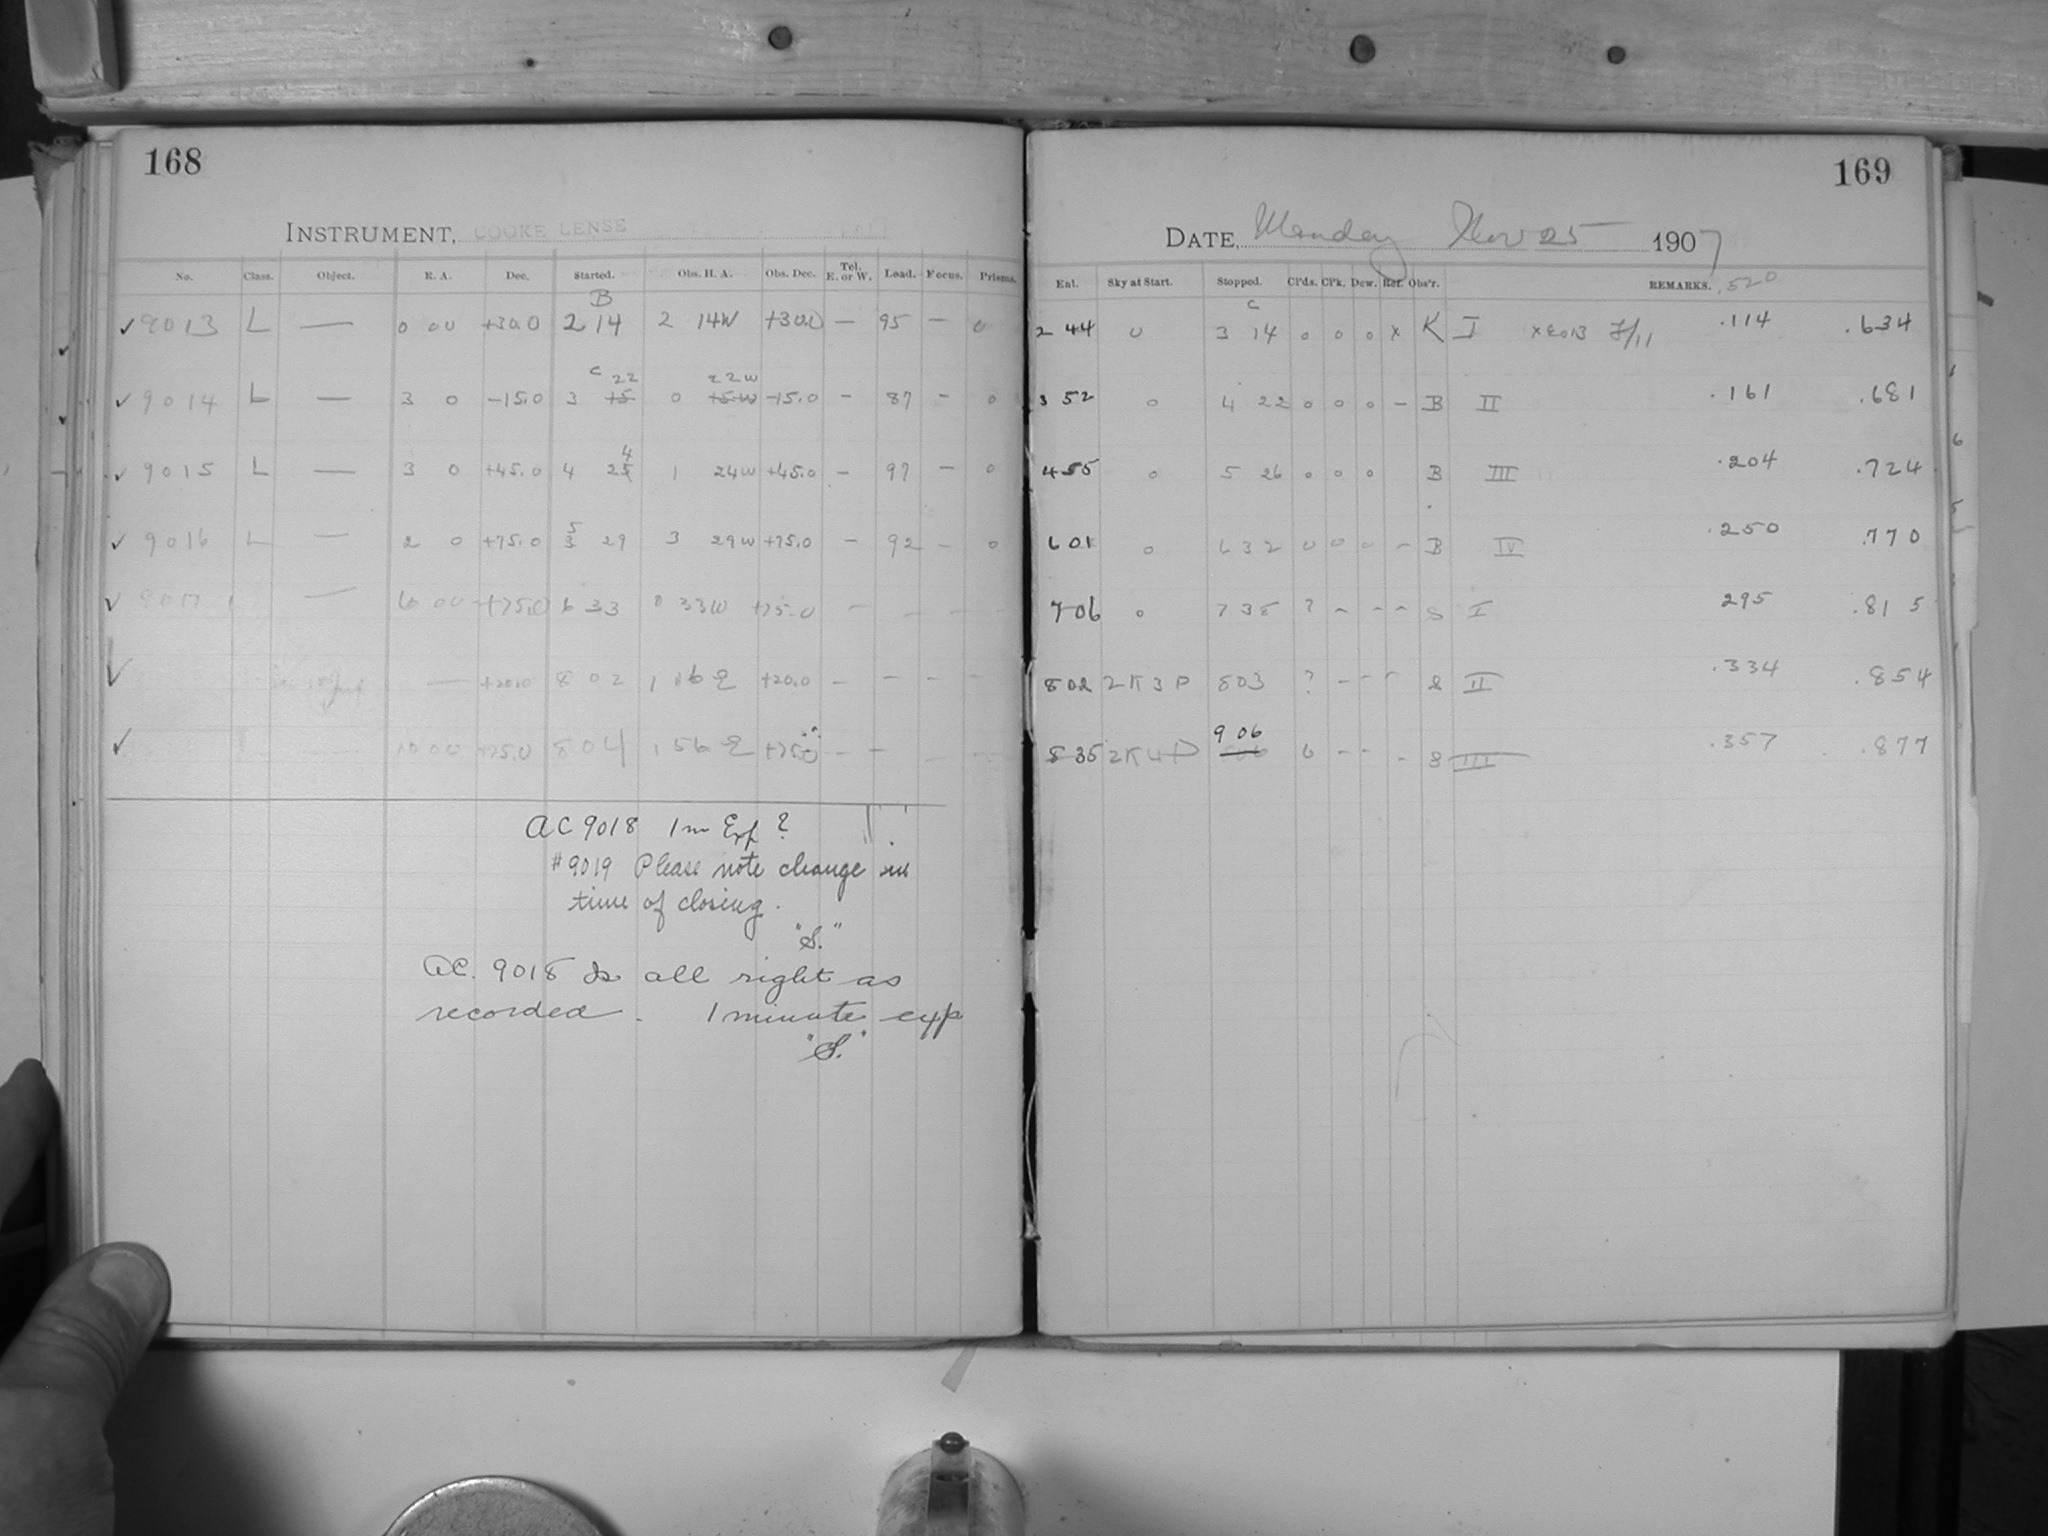 168
INSTRUMENT, COOKE LENSE
No. Class. Object. R. A. Dec. Started. Obs. H. A. Obs. Dec. Tel. E. or W. Load. Focus. Prisms.
B
✓ 9013 L — 0 00 +30.0 2 14 2 14W +30.0 — 95 — 0
c 22 22W
✓ 9014 L — 3 0 -15.0 3 15 0 15W -15.0 — 87 — 0
4
✓ 9015 L — 3 0 +45.0 4 25 1 24W +45.0 — 97 — 0
5
✓ 9016 L — 2 0 +75.0 3 29 3 29W +75.0 — 92 — 0
✓ 9017 — 6 00 +75.0 6 33 0 33W +75.0 — — —
✓ — +20.0 8 02 1 16 E +20.0 — — — —
✓ — 10 00 +75.0 8 04 1 56 E +75.0 — — — —
AC 9018 1m Exp ?
#9019 Please note change in
time of closing.
"S."
AC. 9018 Is all right as
recorded. 1 minute exp
"S."
169
DATE, Monday Nov 25 1907
Ent. Sky at Start. Stopped. Cl'ds. Cl'k. Dew. Ref. Obs'r. REMARKS. .520
c
2 44 0 3 14 0 0 0 x K I x 9013 F/11 .114 .634
3 52 0 4 22 0 0 0 — B II .161 .681
4 55 0 5 26 0 0 0 B III .204 .724
6 01 0 6 32 0 0 0 — B IV .250 .770
7 06 0 7 38 ? — — — S I 295 .815
8 02 2K3P 8 03 ? — — — S II .334 .854
9 06
8 35 2K4P 6 — — — S III .357 .877